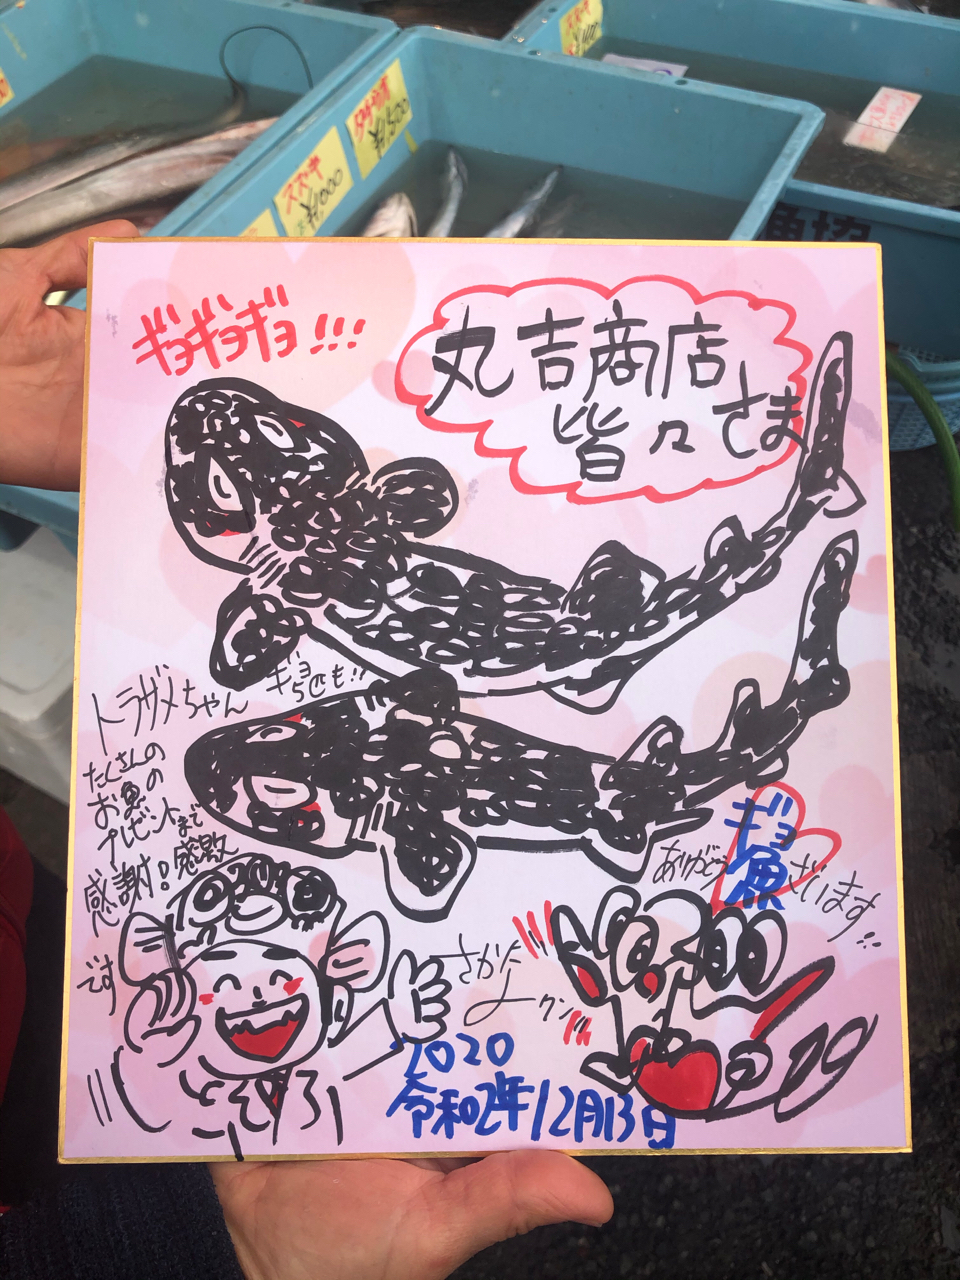 スズキ
¥1000
¥1500
魚協
ギョギョギョ!!!
丸吉商店
皆々さま
トラザメちゃん
ギョ
ら匹も!!
たくさんの
お魚の
プレゼントまで
感謝!感激
です
ありがとうギョ魚ざいます!!
さかなクン
2020
令和2年12月13日